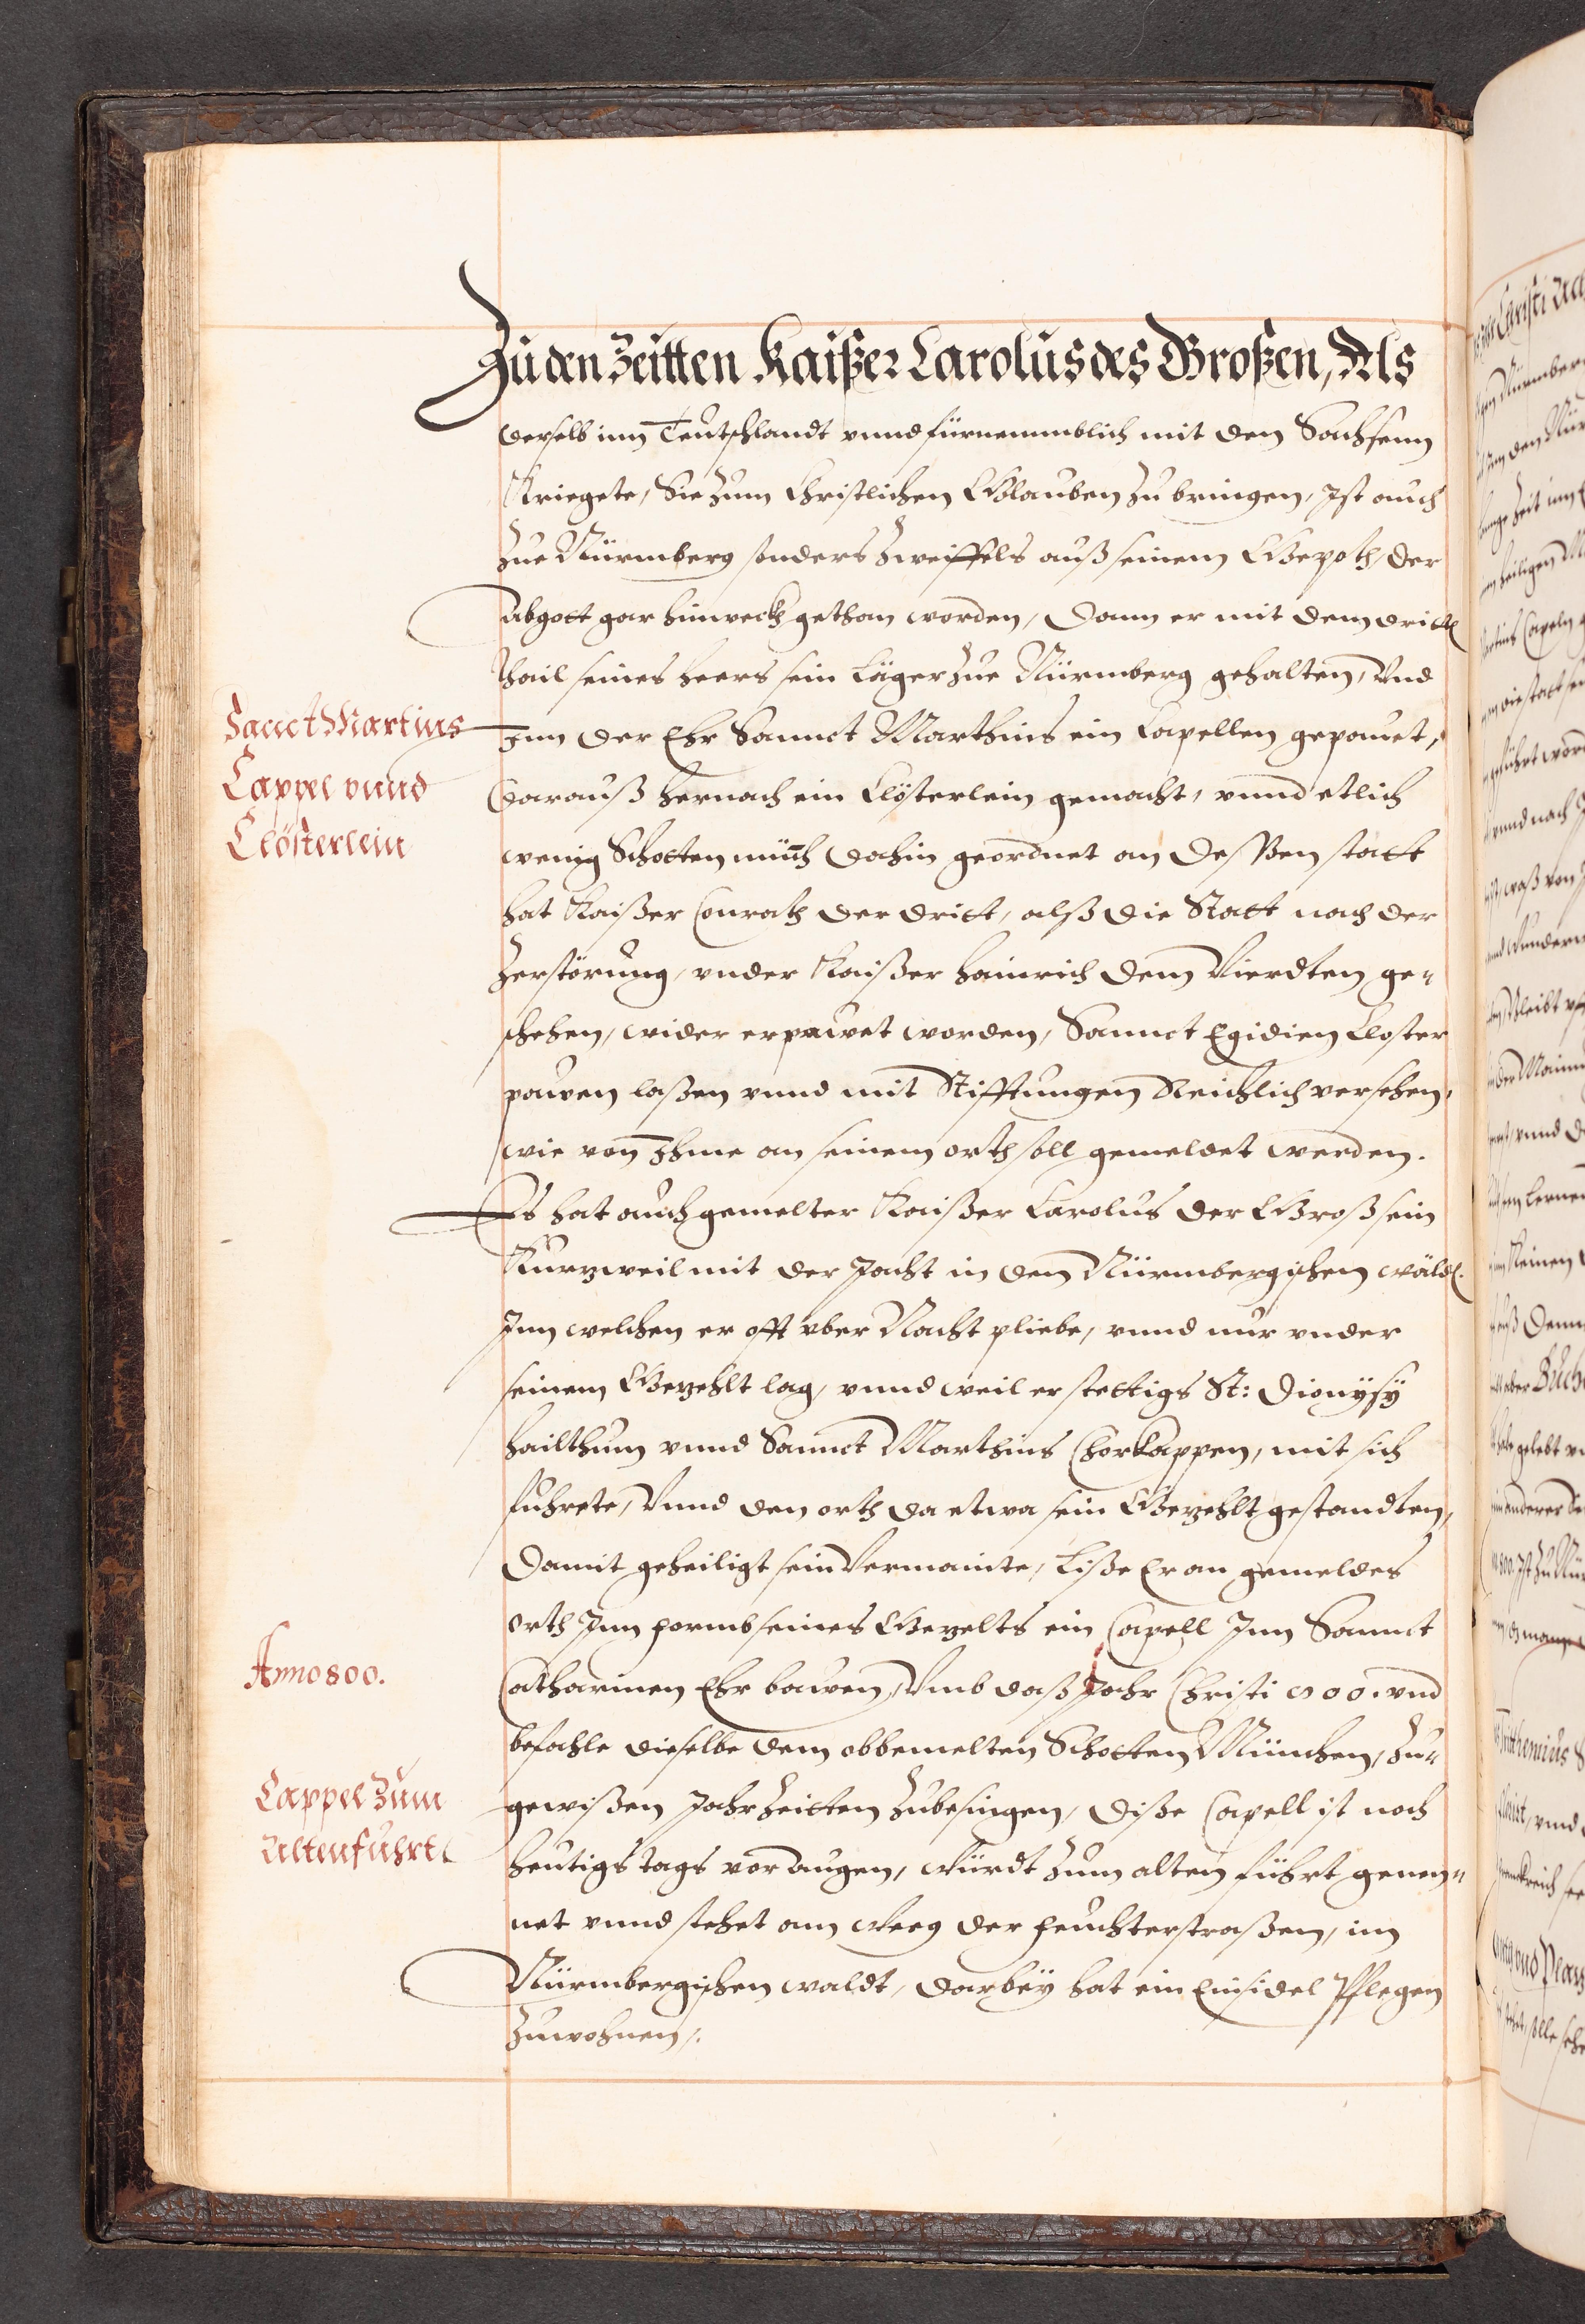 Zu den Zeitten Kaißer Carolus des Großen, Als
derselb inn Teutschlandt vnnd fürnemmblich mit den Sachsenn
Kriegete, Sie zum Christlichen Glauben zu bringen, Ist auch
zue Nürmberg sonders zweiffels auß seinem Gepoth, der
Abgott gar hinweckh gethan worden, Dann er mit dem dritt
thail seines heers sein Läger zue Nürmberg gehalten, Vnd
Sanct Martins
Inn der Ehr Sannct Marthins ein Capellen gepauet,
Cappel vnnd
Darauß hernach ein Clösterlein gemacht, vnnd etlich
Clösterlein
wenig Schotten münch dahin geordnet an deßßen statt
hat Kaißer Conrath der dritt, alß die Statt nach der
Zerstörung, vnder Kaißer Hainrich dem Vierdten ge-
schehen, wider erpauet worden, Sannct Egidien Closter
pauen laßen vnnd mit Stifftungen Reichlich versehen,
wie von Ihme an seinem orth soll gemeldet werden.
Es hat auch gemelter Kaißer Carolus der Groß sein
Kurzweil mit der Jacht in den Nürmbergischen wäld.
Inn welchen er offt vber Nacht pliebe, vnnd nur vnder
seinem Gezehlt lag, vnnd weil er stettigs St: Dionysy
hailthum vnnd Sannct Marthins Chorkappen, mit sich
fuhrete, Vnnd den orth da etwa sein Gezehlt gestandten,
Damit geheiligt sein Vermainte, Liße Er an gemeldes
orth Inn formb seines Gezelts ein Capell Inn Sannct
Anno 800.
Catharinen Ehr bauen, Vmb daß Jahr Christi 800. vnd
befahle dieselbe dem obbemelten Schotten München, zu-
Cappel Zum
gewißen Jahrzeitten zubesingen, diße Capell ist noch
Altenfuhrt
heutigs tags vor augen, Würdt zum alten führt genen-
net vnnd stehet am Weeg der feuchterstraßen, im
Nürmbergischen waldt, darbey hat ein Einsidel Pflegen
zuwohnen.